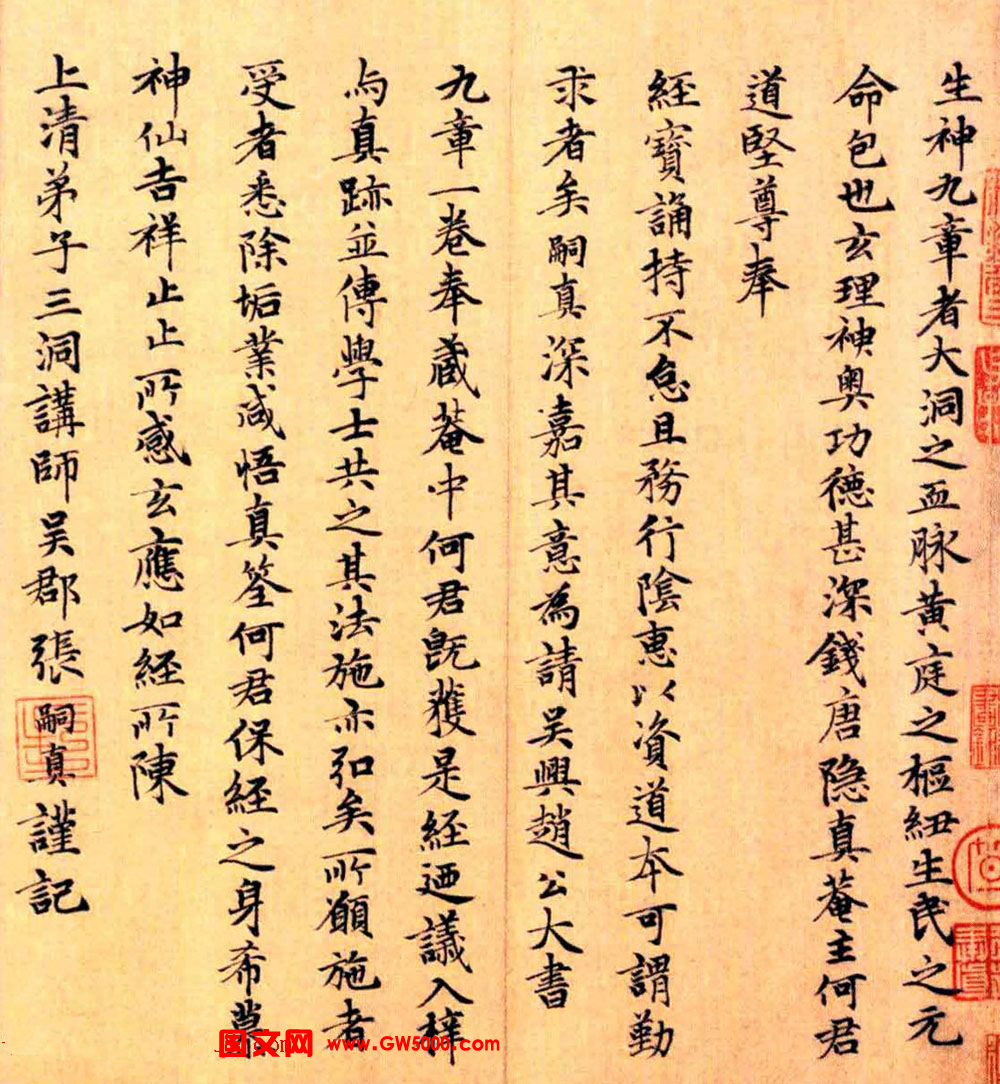 生神九章者大洞之血脉黄庭之樞紐生民之元
命包也玄理神奥功德甚深錢唐隐真菴主何君
道堅尊奉
經寶誦持不怠且務行陰惠以資道本可謂勤
求者矣嗣真深嘉其意為請吴興趙公大書
九章一卷奉藏菴中何君既獲是經迺議入梓
与真跡並傳學士共之其法施亦弘矣所願施者
受者悉除垢業咸悟真筌何君保經之身希蹤
神仙吉祥止止所感玄應如經所陳
上清弟子三洞講師吴郡張嗣真謹記
图文网 www.GW5000.com